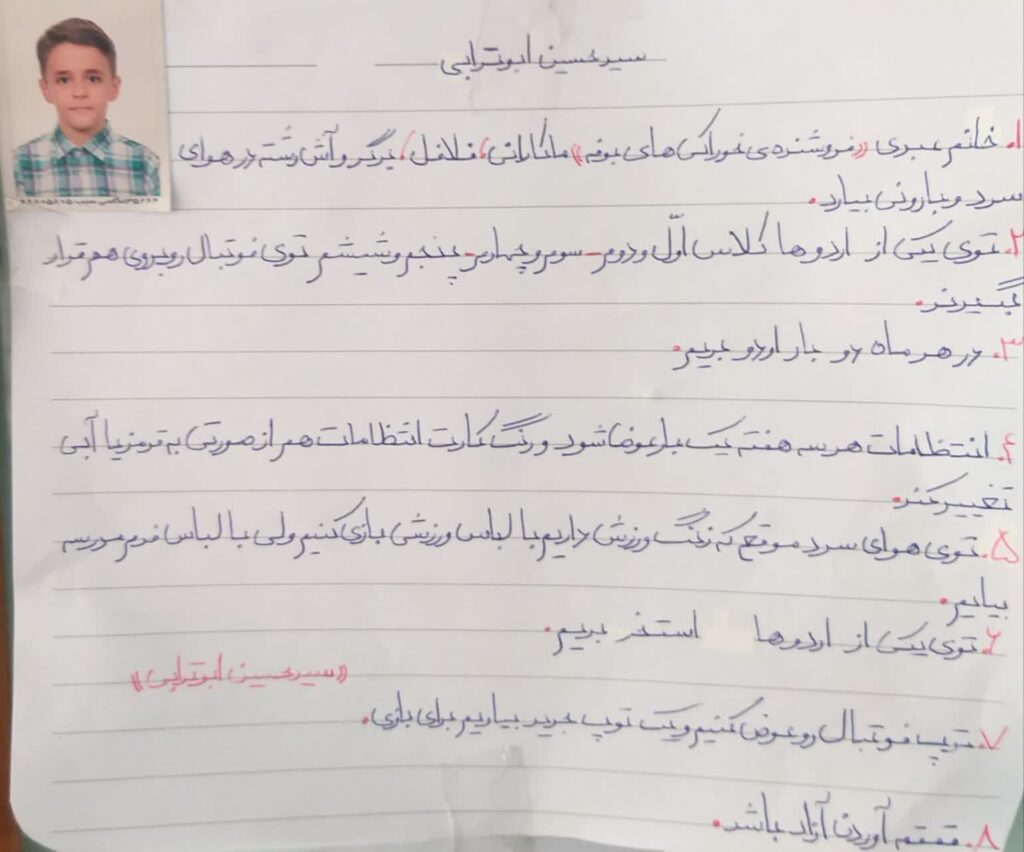 سید حسین ابوترابی
۱. خانم عبدی «فروشنده‌ی خوراکی های بوفه» ماکارانی، فلافل، برگر و آش رشته در هوای
سرد و بارونی بیارد.
۲. توی یکی از اردوها کلاس اوّل و دوم - سوم و چهارم - پنجم و ششم توی فوتبال روبروی هم قرار
بگیرند.
۳. در هر ماه دو بار اردو بریم.
۴. انتظامات هر سه هفته یک بار عوض شود و رنگ کارت انتظامات هم از صورتی به قرمز یا آبی
تغییر کند.
۵. توی هوای سرد موقع که زنگ ورزش داریم با لباس ورزشی بازی کنیم ولی با لباس فرم مدرسه
بیایم.
۶. توی یکی از اردوها استخر بریم.
«سید حسین ابوترابی»
۷. توپ فوتبال رو عوض کنیم و یک توپ جدید بیاریم برای بازی.
۸. قمقمه آوردن آزاد باشد.